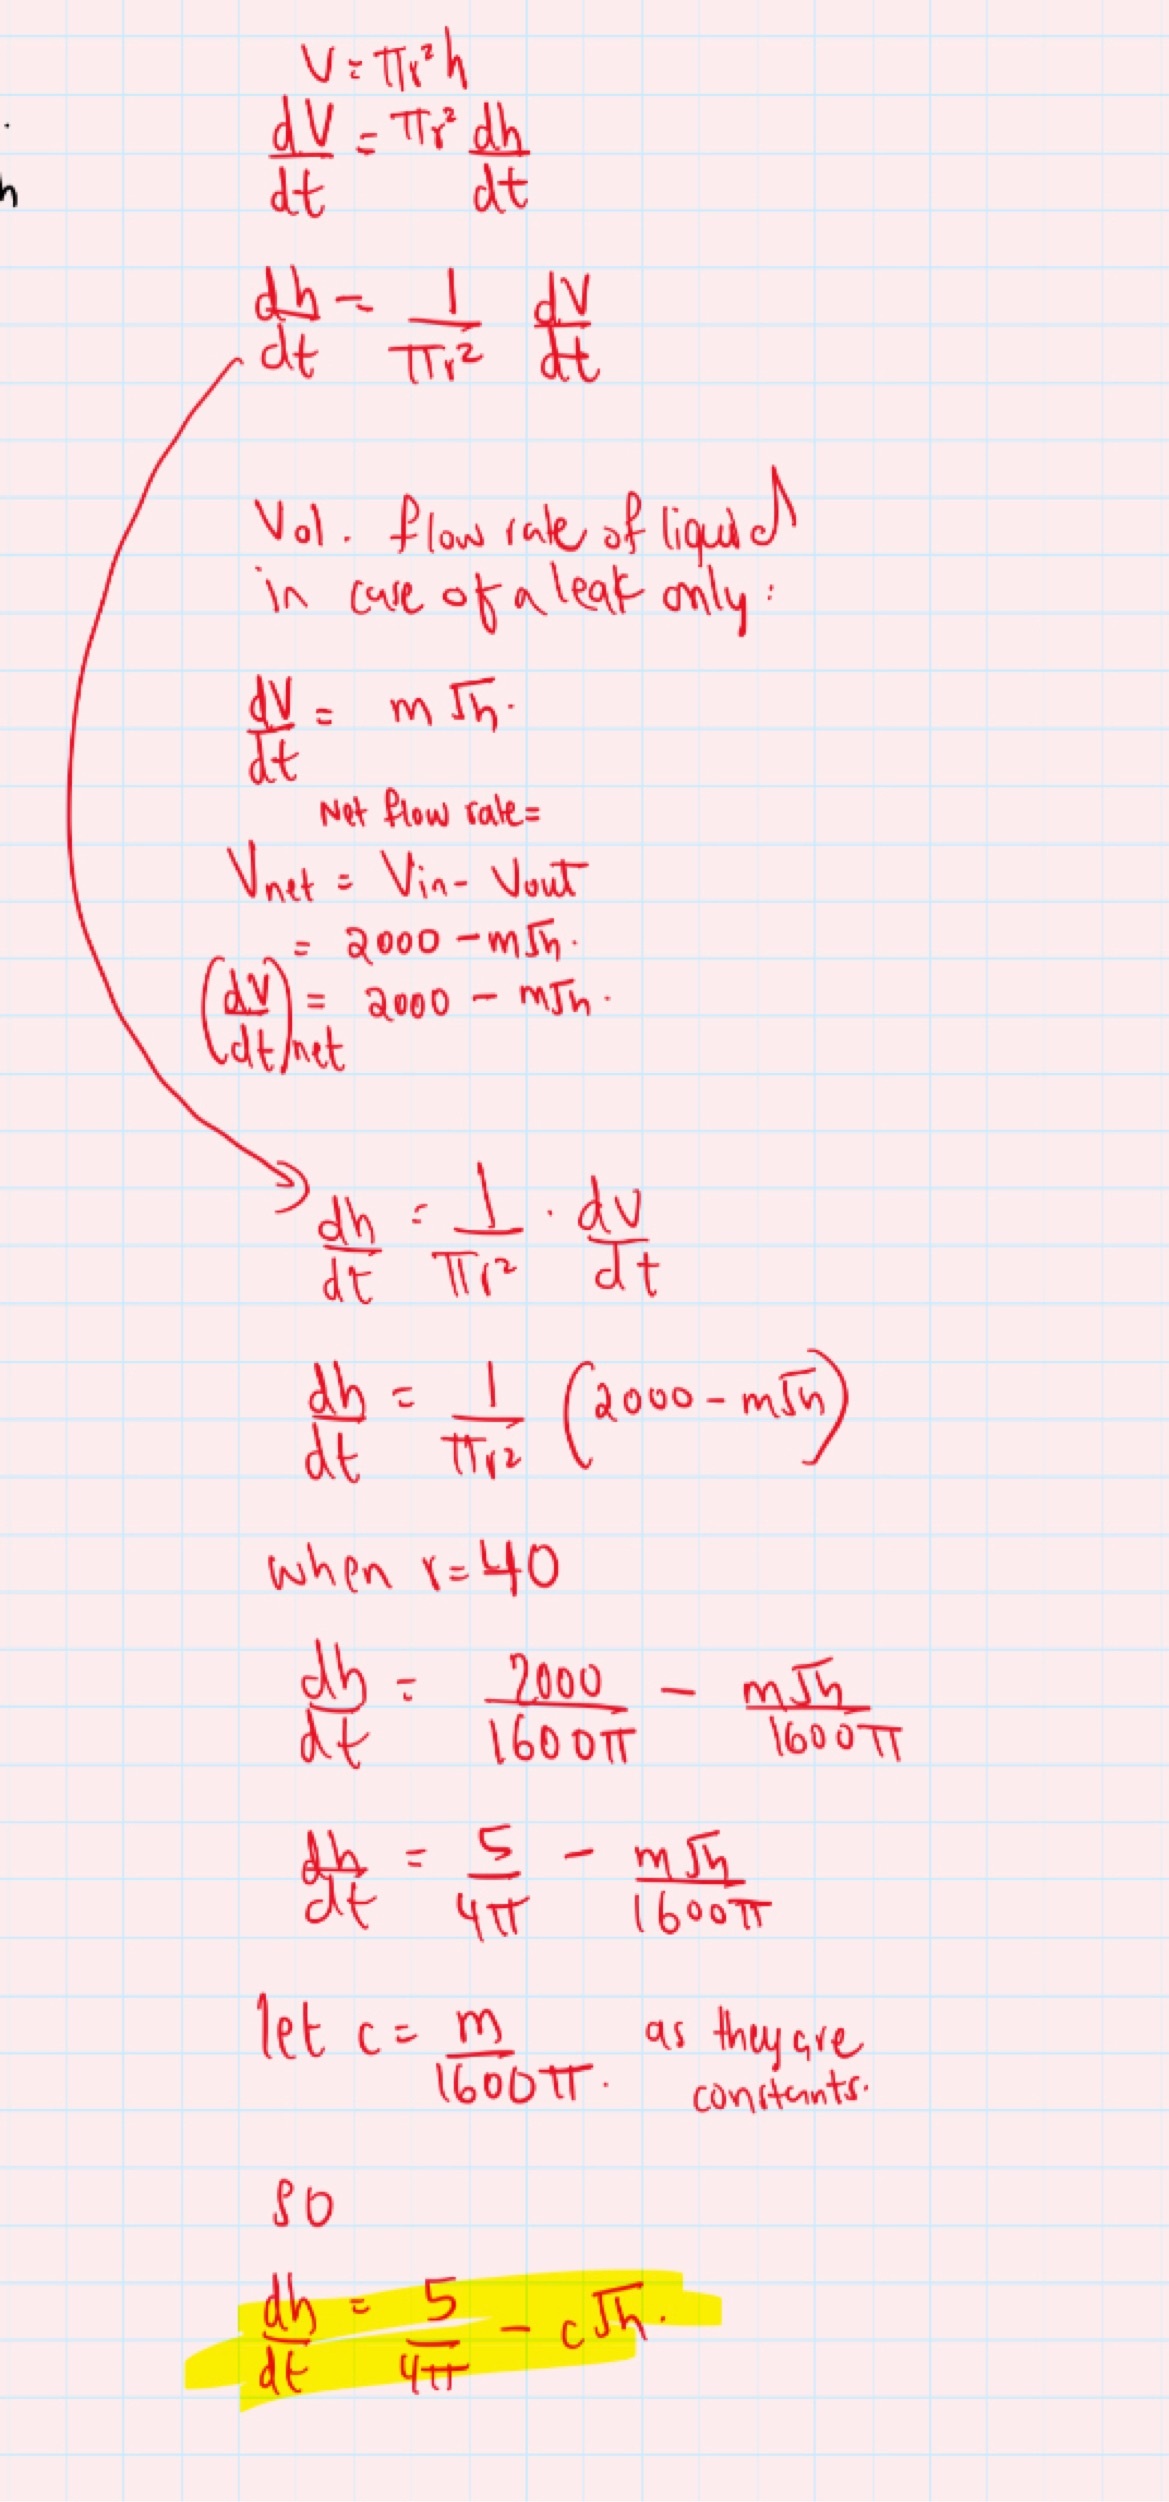 V = πr²h
dV/dt = πr² dh/dt
h
dh/dt = 1/πr² dV/dt
Vol. flow rate of liquid
in case of a leak only:
dV/dt = m√h.
Net flow rate=
Vnet = Vin - Vout
= 2000 - m√h.
(dV/dt)net = 2000 - m√h.
dh/dt = 1/πr² · dV/dt
dh/dt = 1/πr² (2000 - m√h)
when r=40
dh/dt = 2000/1600π - m√h/1600π
dh/dt = 5/4π - m√h/1600π
let c = m/1600π. as they are
constants.
so
dh/dt = 5/4π - c√h.